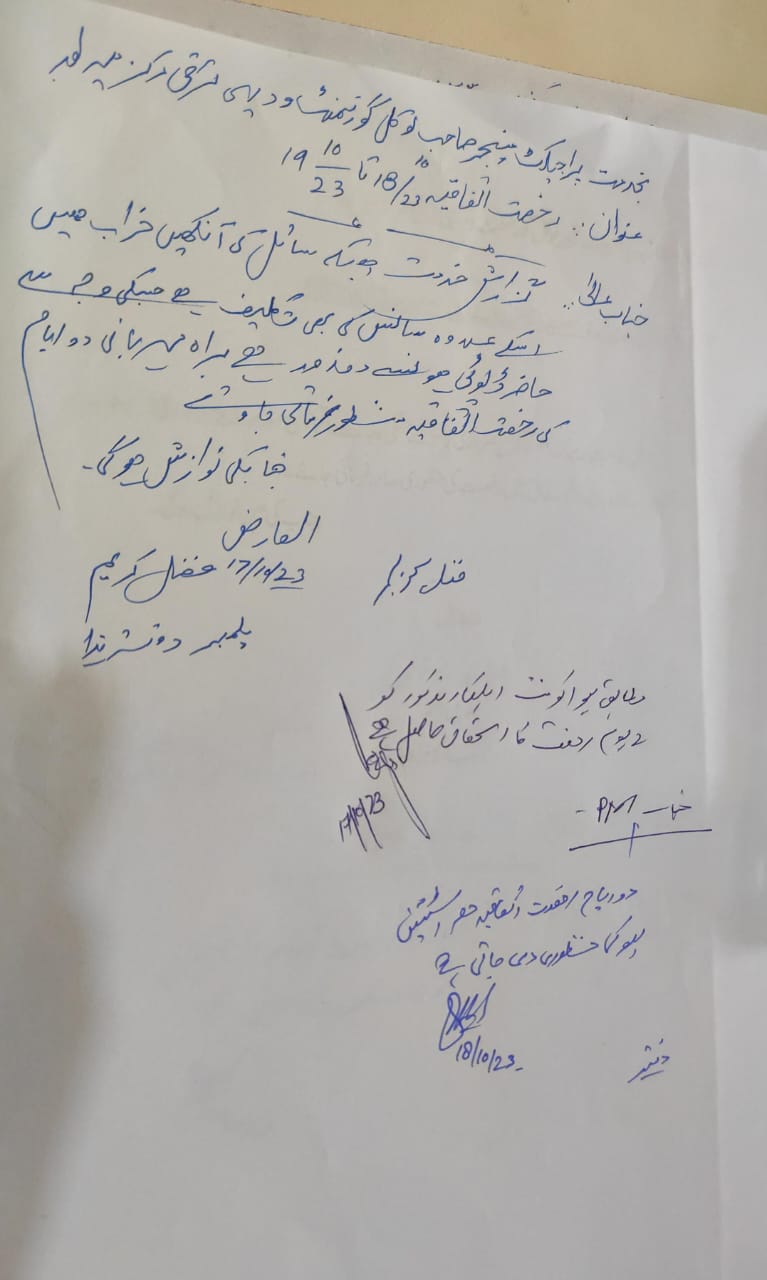 بخدمت پراجیکٹ مینجر صاحب لوکل گورنمنٹ و دیہی ترقی مرکز
عنوان :۔ رخصت اتفاقیہ 18/10/23 تا 19 10/23
جناب عالی :۔ گزارش خدمت ہیکہ سائل کی آنکھیں خراب ہیں
اسکے علاوہ سانس کی بھی تکلیف ہے جسکی وجہ سے
حاضر ڈیوٹی ہونے سے معذور ہے براہ مہربانی دو ایام
کی رخصت اتفاقیہ منظور فرمائی جاوے
جنابکی نوازش ہوگی۔
العارض
17/10/23 فضل کریم
پلمبر
مطابق لیو اکونٹ اہلکار مذکور کو
2 یوم رخصت کا استحقاق حاصل ہے
17/10/23
جناب PM۔
دو ایام رخصت اتفاقیہ معہ اسٹیشن
لیو کی منظوری دی جاتی ہے
18/10/23
دفتر